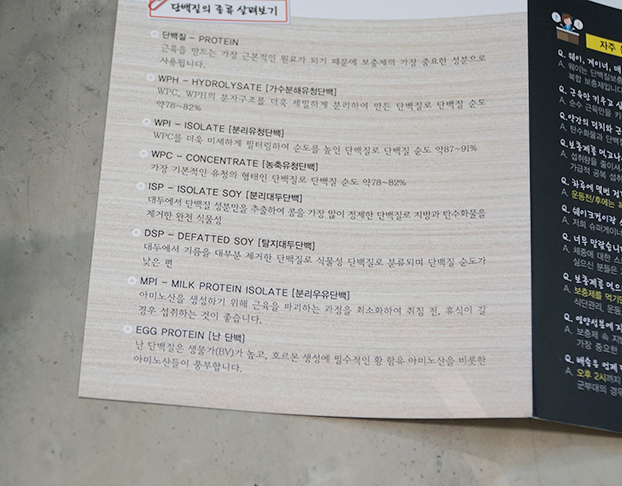 단백질의 종류 살펴보기
단백질 – PROTEIN
근육을 만드는 가장 근본적인 원료가 되기 때문에 보충제의 가장 중요한 성분으로
사용됩니다.
WPH – HYDROLYSATE [가수분해유청단백]
WPC, WPH의 분자구조를 더욱 세밀하게 분리하여 만든 단백질로 단백질 순도
약78~82%
WPI – ISOLATE [분리유청단백]
WPC를 더욱 미세하게 필터링하여 순도를 높인 단백질로 단백질 순도 약87~91%
WPC – CONCENTRATE [농축유청단백]
가장 기본적인 유청의 형태인 단백질로 단백질 순도 약78~82%
ISP – ISOLATE SOY [분리대두단백]
대두에서 단백질 성분만을 추출하여 콩을 가장 많이 정제한 단백질로 지방과 탄수화물을
제거한 완전 식물성
DSP – DEFATTED SOY [탈지대두단백]
대두에서 기름을 대부분 제거한 단백질로 식물성 단백질로 분류되며 단백질 순도가
낮은 편
MPI – MILK PROTEIN ISOLATE [분리우유단백]
아미노산을 생성하기 위해 근육을 파괴하는 과정을 최소화하여 취침 전, 휴식이 길
경우 섭취하는 것이 좋습니다.
EGG PROTEIN [난 단백]
난 단백질은 생물가(BV)가 높고, 호르몬 생성에 필수적인 황 함유 아미노산을 비롯한
아미노산들이 풍부합니다.
자주
Q. 웨이, 게이너, 매
A. 웨이는 단백질보충
복합 보충제입니다
Q. 근육만 키우고 싶
A. 순수 근육만을 키
A. 탄수화물과 단백질
Q. 보충제를 먹고나
A. 섭취량을 줄이시
가급적 공복 섭취
Q. 하루에 몇번 먹
A. 운동전/후에는 꼭
Q. 쉐이크컵이랑
A. 저희 슈퍼게이너
Q. 너무 말랐습니
A. 체중에 대한 스
싶으신 분들은
Q. 보충제를 먹으
A. 보충제를 먹기만
식단관리, 운동
Q. 영양성분에 지
A. 보충제 속 지
가장 중요한
Q. 배송은 언제
A. 오후 2시까지
군부대의 경우